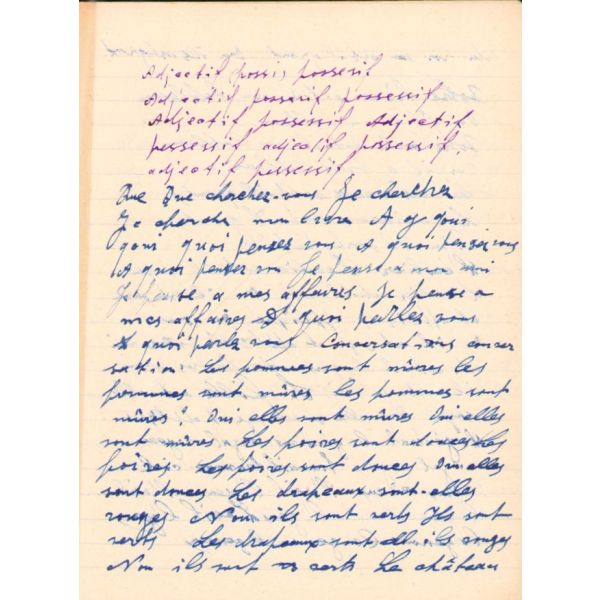 Adjectif (possi) possesif
Adjectif possesif possessif
Adjectif possessif Adjectif
possessif adjectif possessif.
adjectif possessif
Que Que cherchez-vous Je cherchez
Je cherche mon livre A q quoi
quoi quoi pensez vous A quoi pensez vous
A quoi pensez vou Je pense à mon ami
Je pense a mes affaires Je pense a
mes affaires quoi parlez vous
quoi parlez vous Conversations conver
sation Les pommes sont mûres les
pommes sont mûres les pommes sont
mûres? Oui elles sont mûres Oui elles
sont mûres Les poires sont douces Les
poires Les poires sont douces Oui elles
sont douces Les drapeaux sont-elles
rouges Non ils sont verts Ils sont
verts Les drapeaux sont ell ils rouges
Non ils sont verts Le château